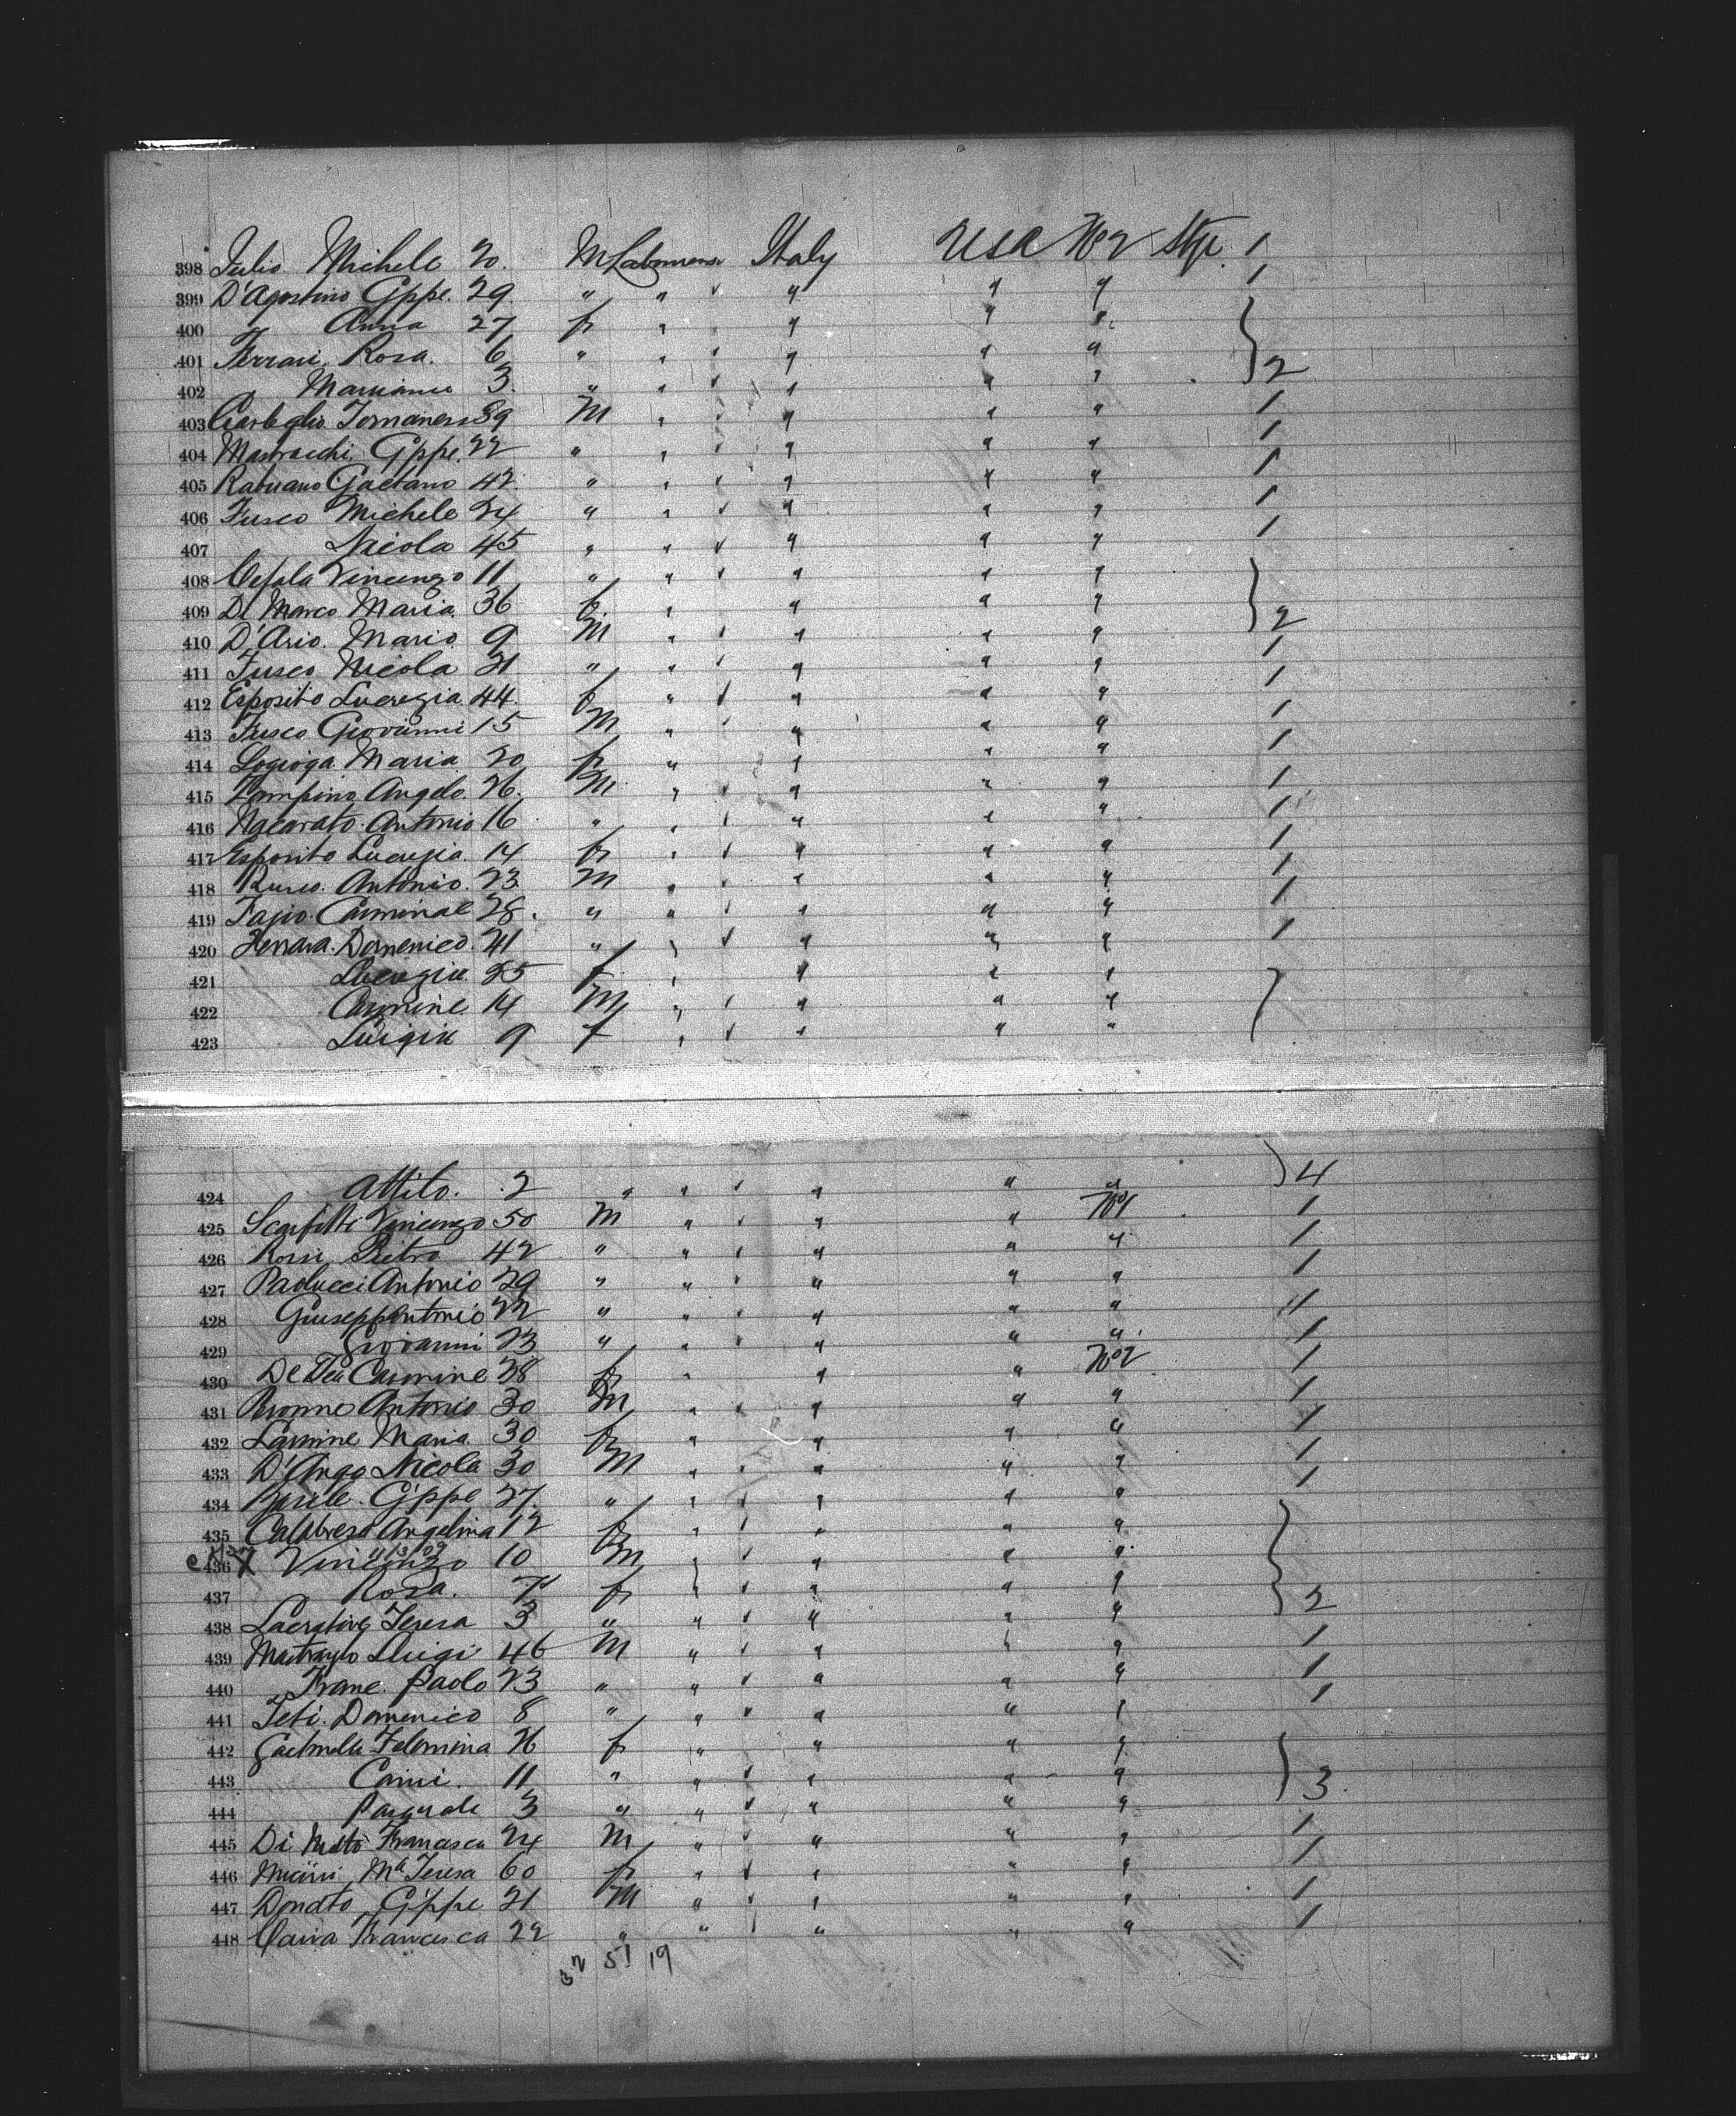 398 Julio Michele 20. M Laborers Italy USA No 2 Stge. 1
399 D'Agostino Gppe. 29 " " " " " 1
400 Anna 27 f " " " "
401 Ferrari Rosa. 6 " " " " "
402 3. " " " " " 2
403 39 M " " " " 1
404 Gppe. 22 " " " " " 1
405 Gaetano 42 " " " " " 1
406 Fusco Michele 24 " " " " " 1
407 Nicola 45 " " " " " 1
408 Cefala Vincenzo 11 " " " " "
409 Di Marco Maria 36 f. " " " " 2
410 D'Ario. Mario 9 M " " " " 1
411 Fusco Nicola 21 " " " " " 1
412 Esposito Lucrezia 44. f " " " " 1
413 Fusco Giovanni 15 M " " " " 1
414 Maria 20 f " " " "
415 Zampino Angelo. 26. M " " " " 1
416 Nacarato Antonio 16 " " " " " 1
417 Esposito Lucrezia 14 f " " " " 1
418 Russo. Antonio. 23 M " " " " 1
419 Carminal 28. " " " " " 1
420 Ferrara. Domenico. 41 " " " " " 1
421 Lucrezia 25 f " " " "
422 Carmine 14 M " " " "
423 Luigia 9 f " " " "
424 Attilo. 2 " " " " " 4
425 Scarfitti Vincenzo 50 M " " " No 1 1
426 Rossi Pietro 42 " " " " " 1
427 Paolucci Antonio 29 " " " " " 1
428 Giuseppantonio 22 " " " " " 1
429 Giovanni 23 " " " " " 1
430 Carmine 28 f " " " No 2 1
431 Antonio 30 M " " " " 1
432 Maria 30 f " " " " 1
433 D'Ango Nicola 30 M " " " " 1
434 Gppe 27. " " " " " 1
435 Calabrese Angelina 12 f " " " "
436 11/3/09 Vincenzo 10 M " " " "
437 Rosa. 7 f " " " " 2
438 Teresa 3 " " " " "
439 Luigi 46 M " " " " 1
440 Paolo 23 " " " " " 1
441 Teti. Domenico 8 " " " " " 1
442 Filomina 26 f " " " "
443 11 " " " " " 3
444 Pasquale 3 " " " " "
445 Di Francesca 24 M " " " " 1
446 Ma Teresa 60 f " " " " 1
447 Donato Gppe 21 M " " " " 1
448 Francesca 22 " " " " " 1
32 51 19